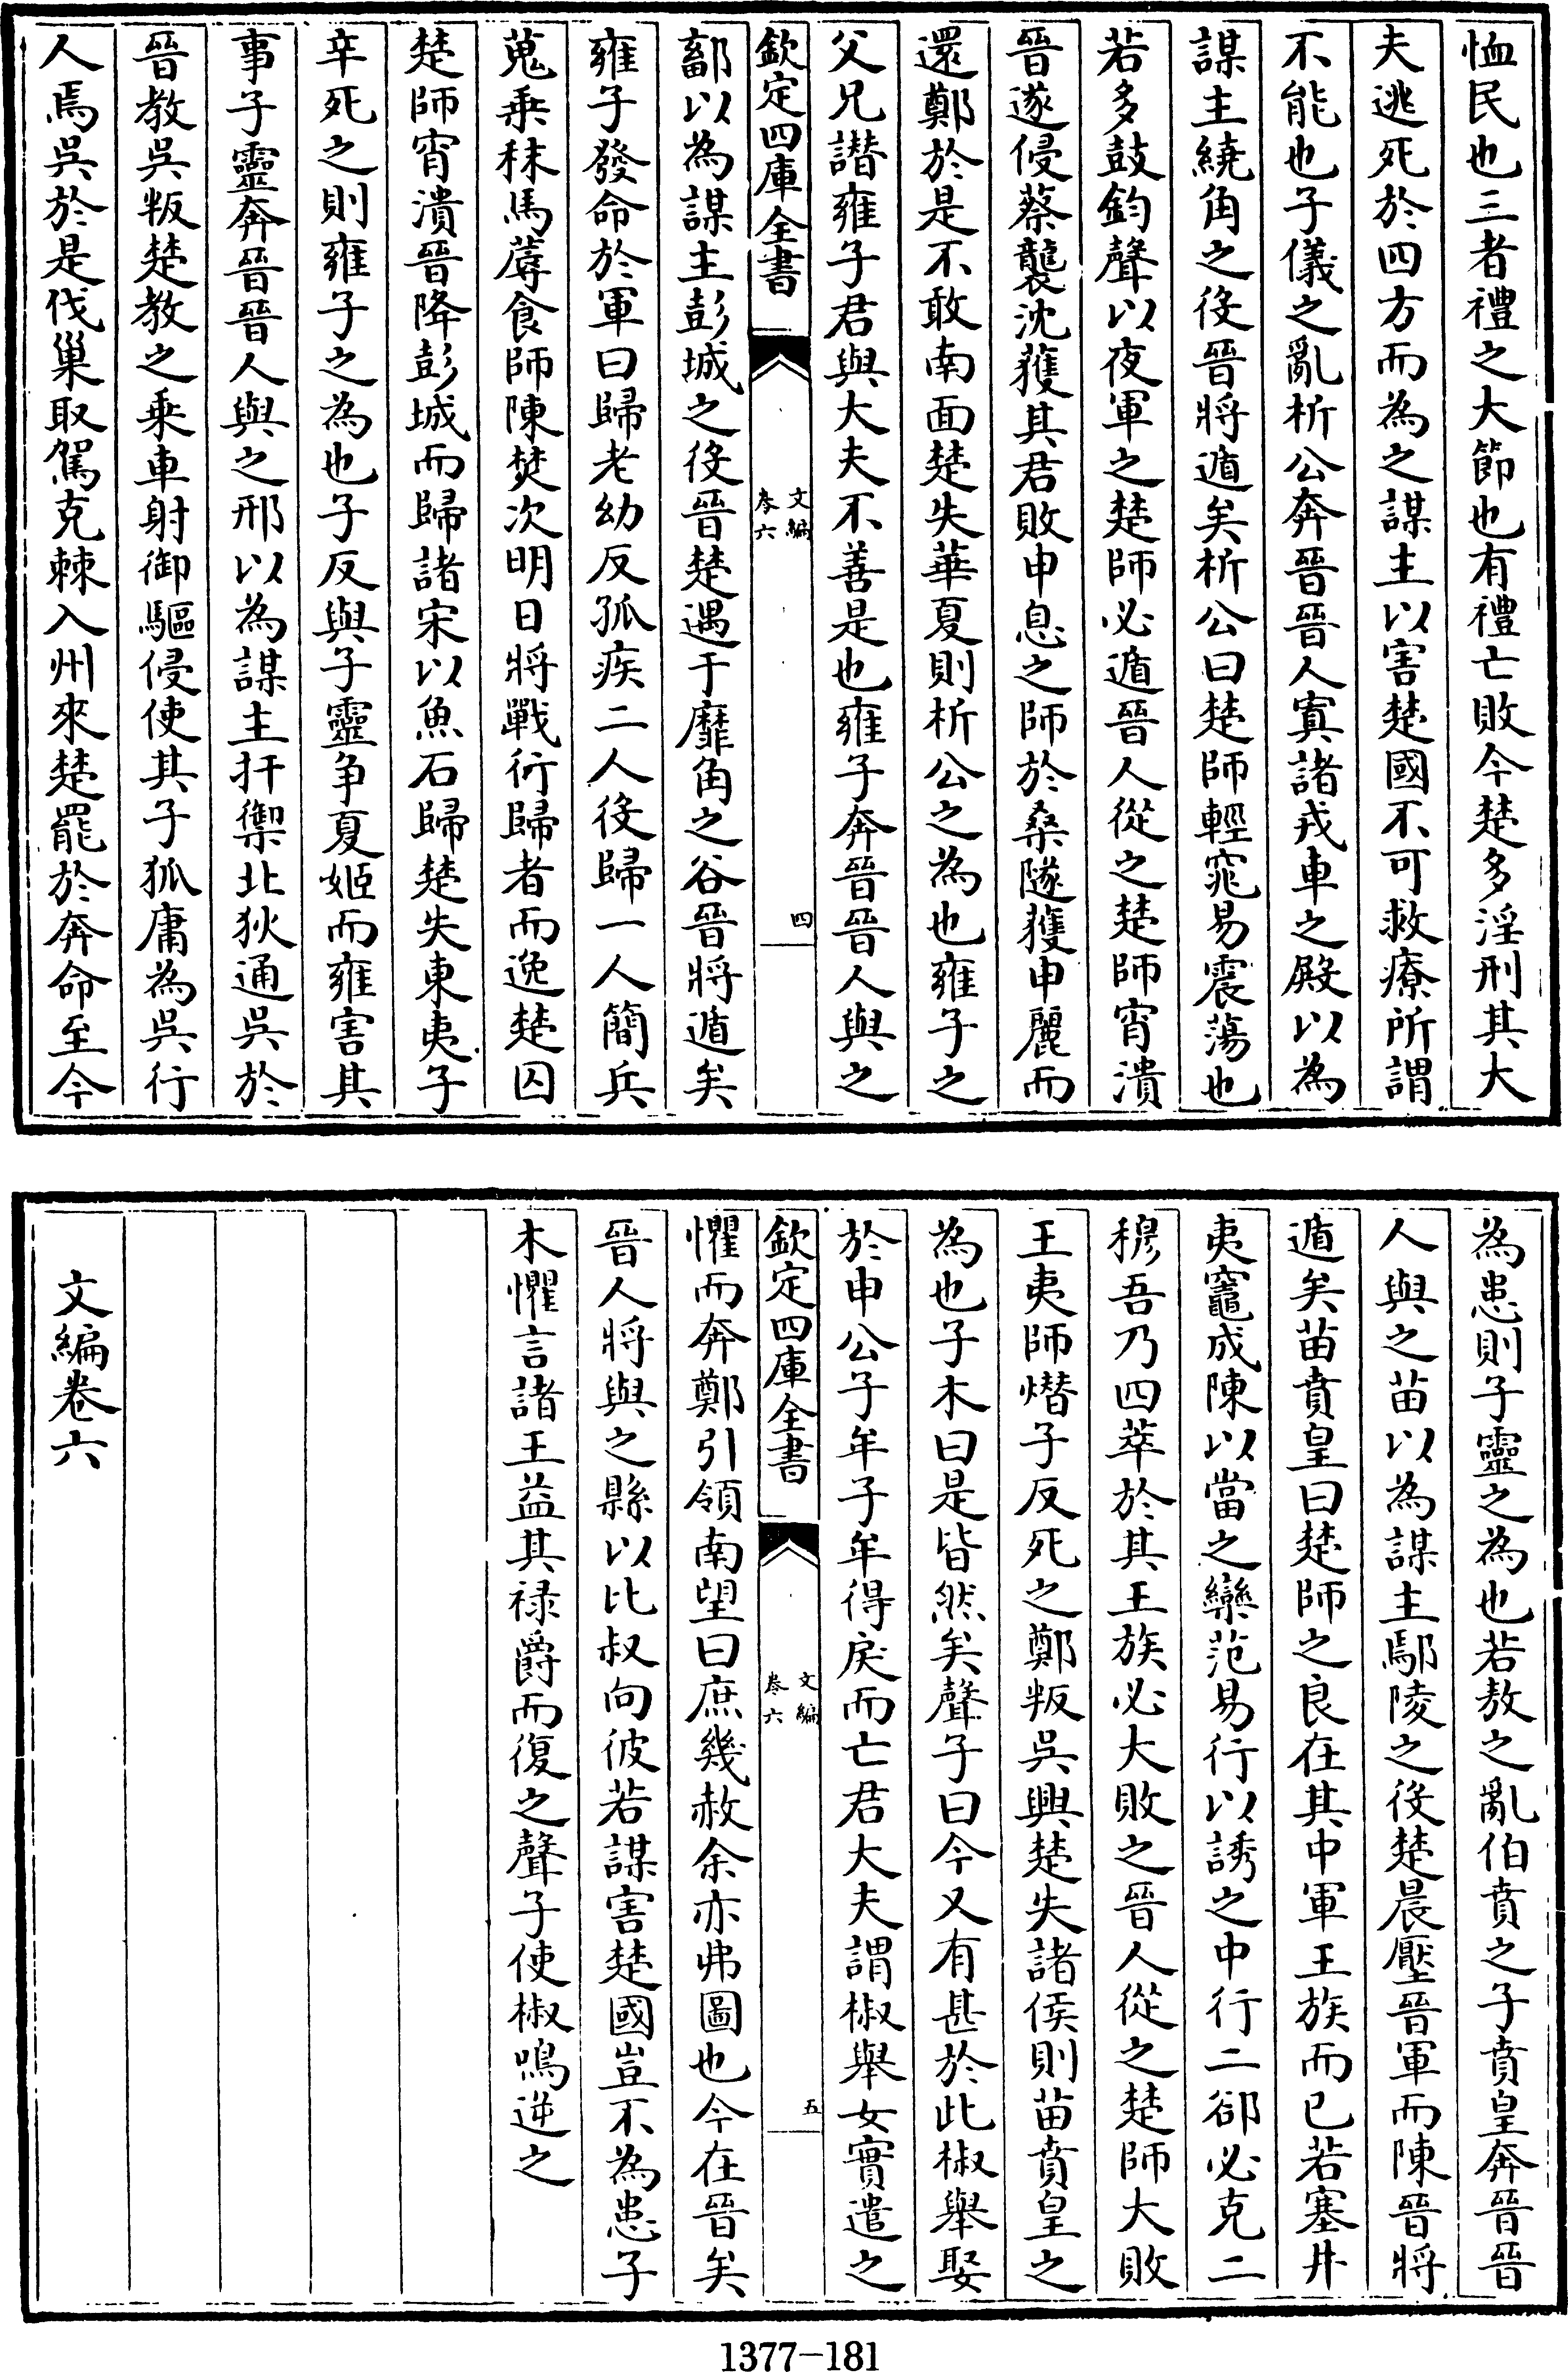 恤民也三者禮之大節也有禮亡敗今楚多淫刑其大
夫逃死於四方而為之謀主以害楚國不可救療所謂
不能也子儀之亂析公奔晉晉人寘諸戎車之殿以為
謀主繞角之役晉將遁矣析公曰楚師輕窕易震蕩也
若多鼓鈞聲以夜軍之楚師必遁晉人從之楚師宵潰
晉遂侵蔡襲沈獲其君敗申息之師於桑隧獲申麗而
還鄭於是不敢南面楚失華夏則析公之為也雍子之
父兄譖雍子君與大夫不善是也雍子奔晉晉人與之
欽定四庫全書
文編
卷六
四
鄐以為謀主彭城之役晉楚遇于靡角之谷晉將遁矣
雍子發命於軍曰歸老幼反孤疾二人役歸一人簡兵
蒐乗秣馬蓐食師陳焚次明日將戰行歸者而逸楚囚
楚師宵潰晉降彭城而歸諸宋以魚石歸楚失東夷子
辛死之則雍子之為也子反與子靈争夏姬而雍害其
事子靈奔晉晉人與之邢以為謀主扞禦北狄通吳於
晉教吳叛楚教之乗車射御驅侵使其子狐庸為吳行
人焉吳於是伐巢取駕克棘入州來楚罷於奔命至今
為患則子靈之為也若敖之亂伯賁之子賁皇奔晉晉
人與之苗以為謀主鄢陵之役楚晨壓晉軍而陳晉將
遁矣苗賁皇曰楚師之良在其中軍王族而已若塞井
夷竈成陳以當之欒范易行以誘之中行二郤必克二
穆吾乃四萃於其王族必大敗之晉人從之楚師大敗
王夷師熸子反死之鄭叛吳興楚失諸侯則苗賁皇之
為也子木曰是皆然矣聲子曰今又有甚於此椒舉娶
於申公子牟子牟得戾而亡君大夫謂椒舉女實遣之
欽定四庫全書
文編
卷六
五
懼而奔鄭引領南望曰庶幾赦余亦弗圖也今在晉矣
晉人將與之縣以比叔向彼若謀害楚國豈不為患子
木懼言諸王益其禄爵而復之聲子使椒鳴逆之
文編卷六
1377-181